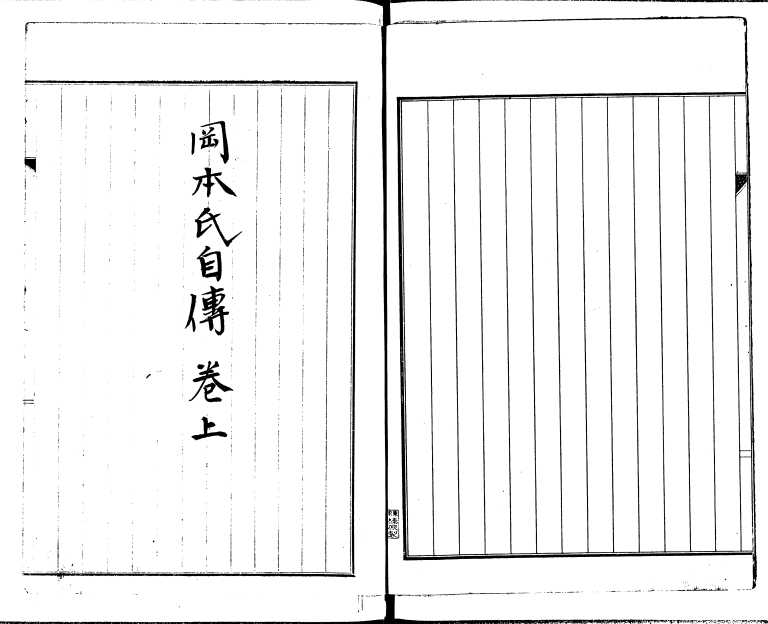 岡本氏自傳 卷上